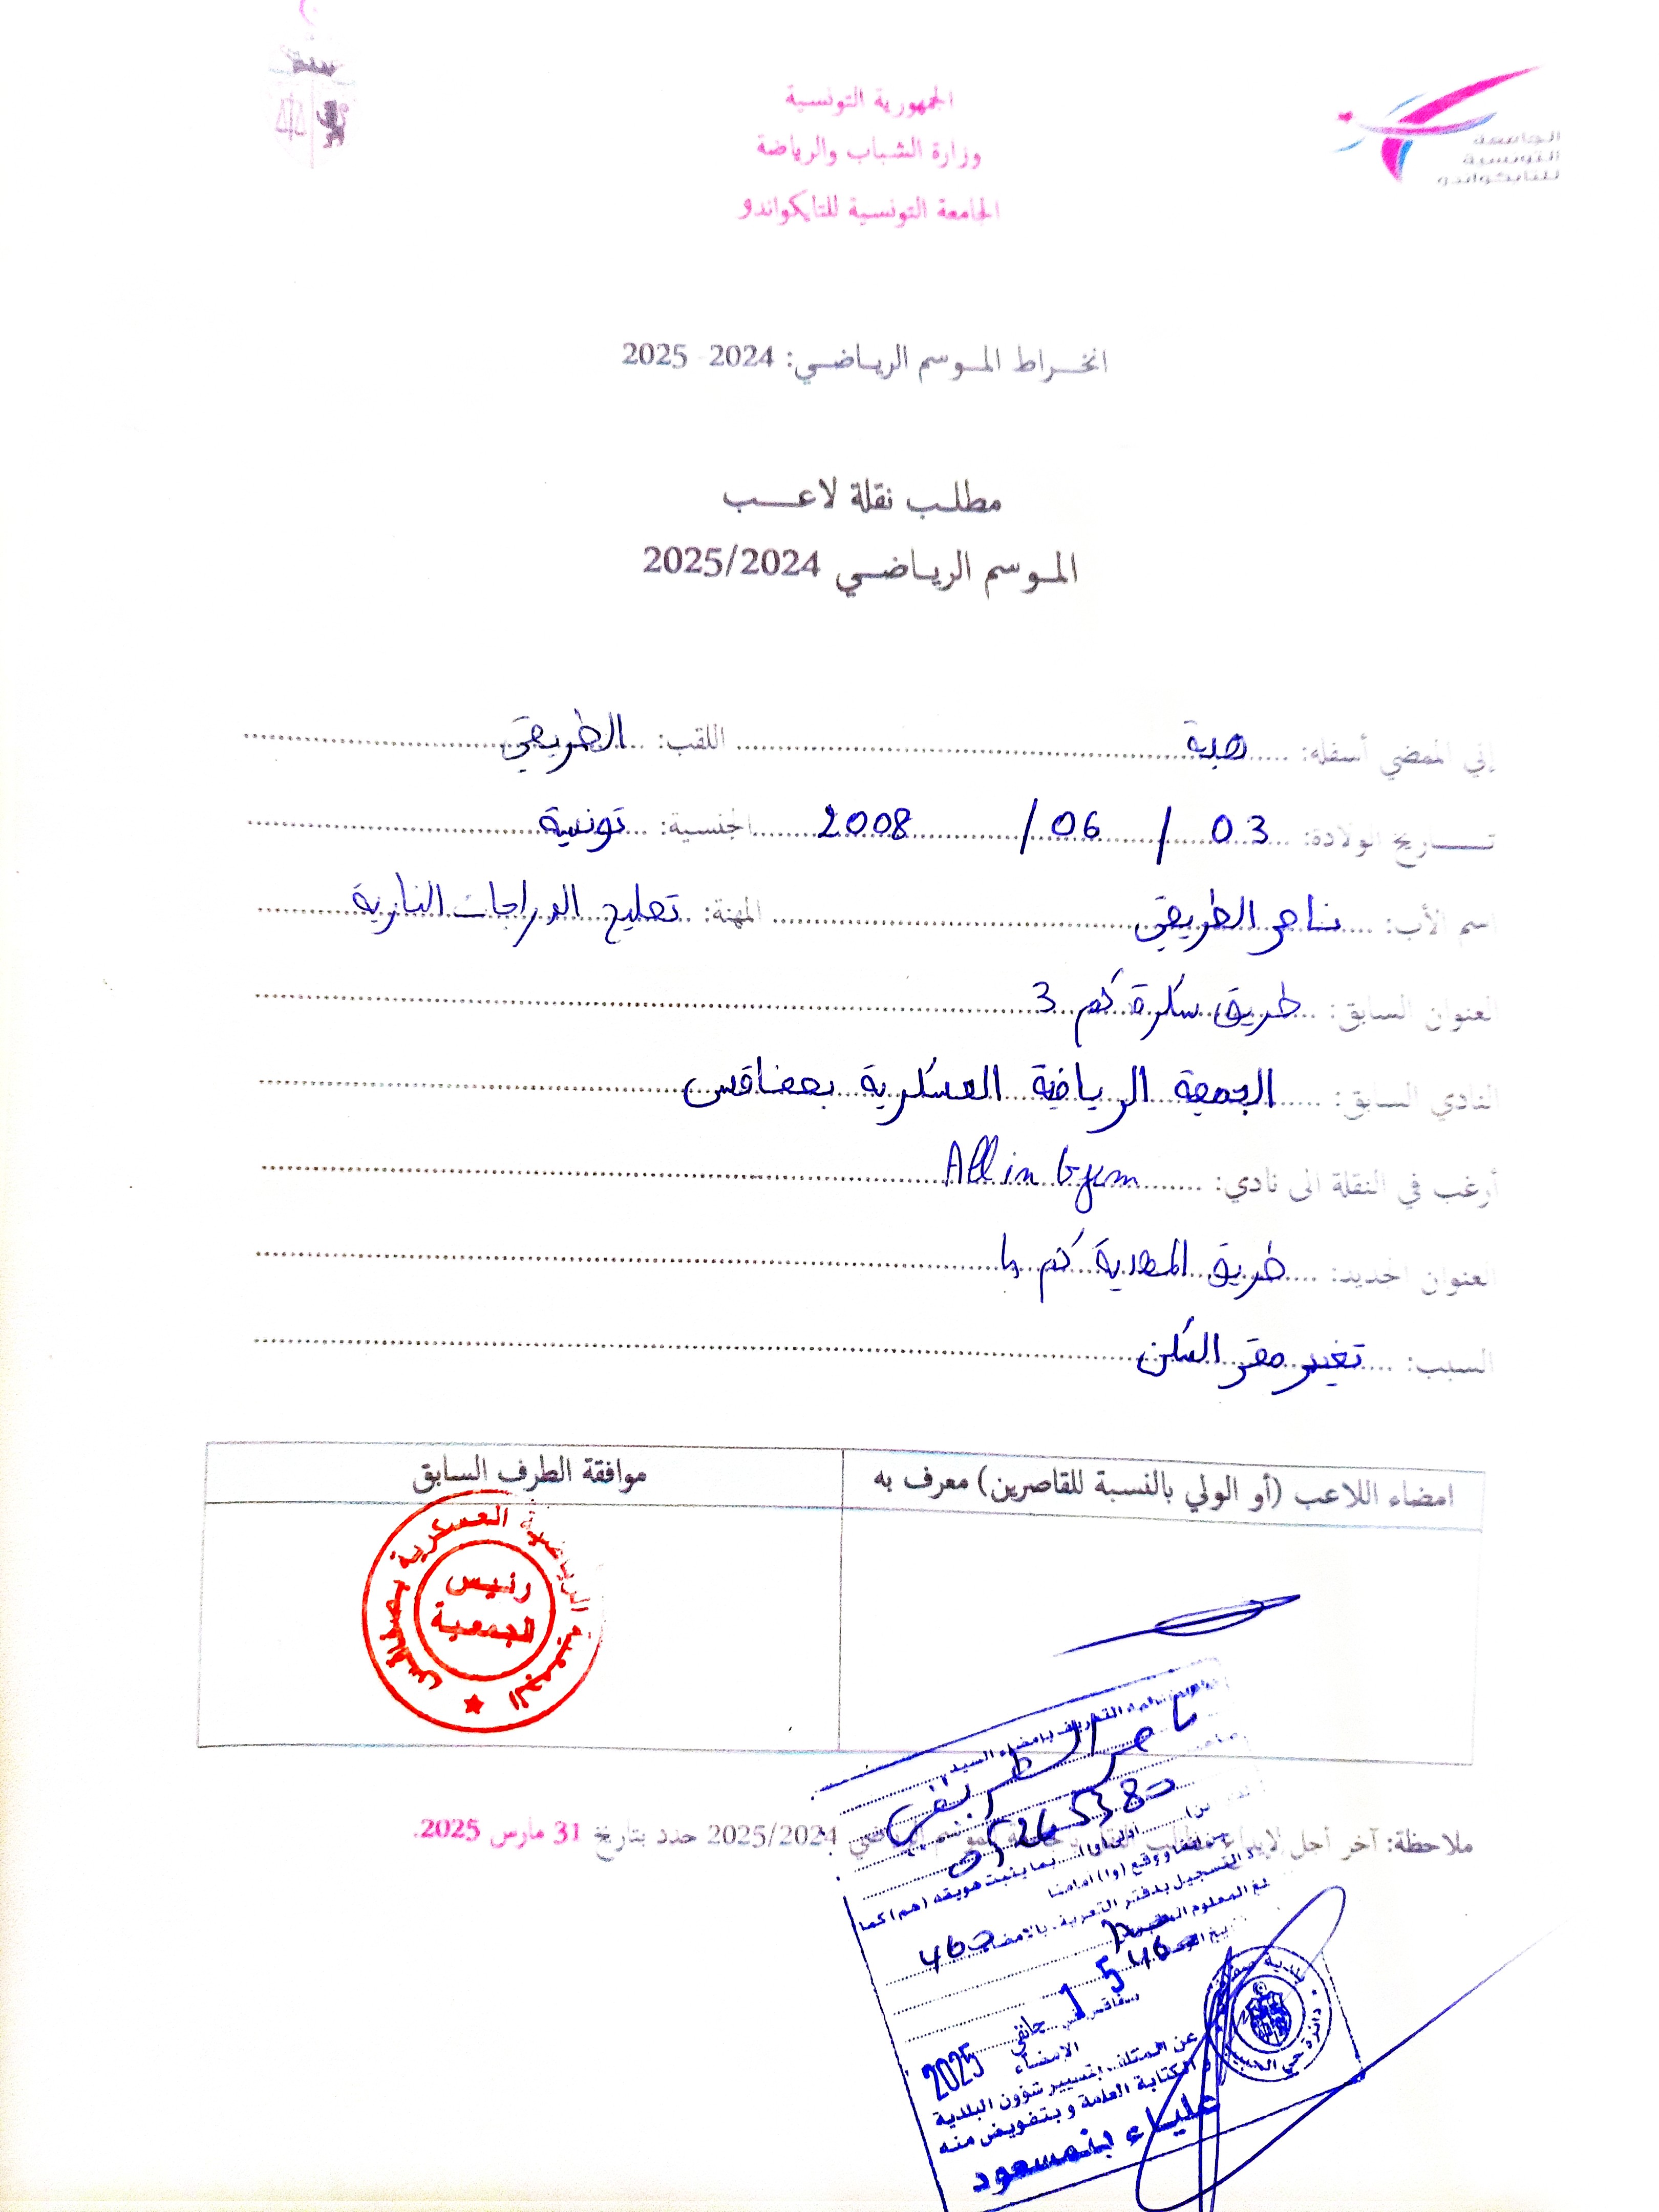 الجمهورية التونسية
وزارة الشباب والرياضة
الجامعة التونسية للتايكواندو
الجامعة
التونسية
للتايكواندو
انخراط الموسم الرياضي: 2024 2025
مطلب نقلة لاعب
الموسم الرياضي 2025/2024
إني الممضي أسفله: هبة اللقب: الطريقي
تاريخ الولادة: 03 / 06 / 2008 الجنسية: تونسية
اسم الأب: ناصر الطريقي المهنة: تصليح الدراجات النارية
العنوان السابق: طريق سكرة كم 3
النادي السابق: الجمعية الرياضية العسكرية بصفاقس
أرغب في النقلة الى نادي: All in Gym
العنوان الجديد: طريق المهدية كم
السبب: تغيير مقر السكن
امضاء اللاعب (أو الولي بالنسبة للقاصرين) معرف به
موافقة الطرف السابق
الجمعية الرياضية العسكرية بصفاقس
رئيس
الجمعية
ملاحظة: آخر أجل لايداع 2025/2024 حدد بتاريخ 31 مارس 2025.
التعريف بامضاء السيد
ناصر الطريقي
بما يثبت هويته (هم) كما
ووقع (وا) امامنا
التسجيل بدفتر التعريف بالامضاء 460
15 جانفي 2025
الامضاء
عن المكلف بتسيير شؤون البلدية
الكتابة العامة و بتفويض منه
علياء بنمسعود